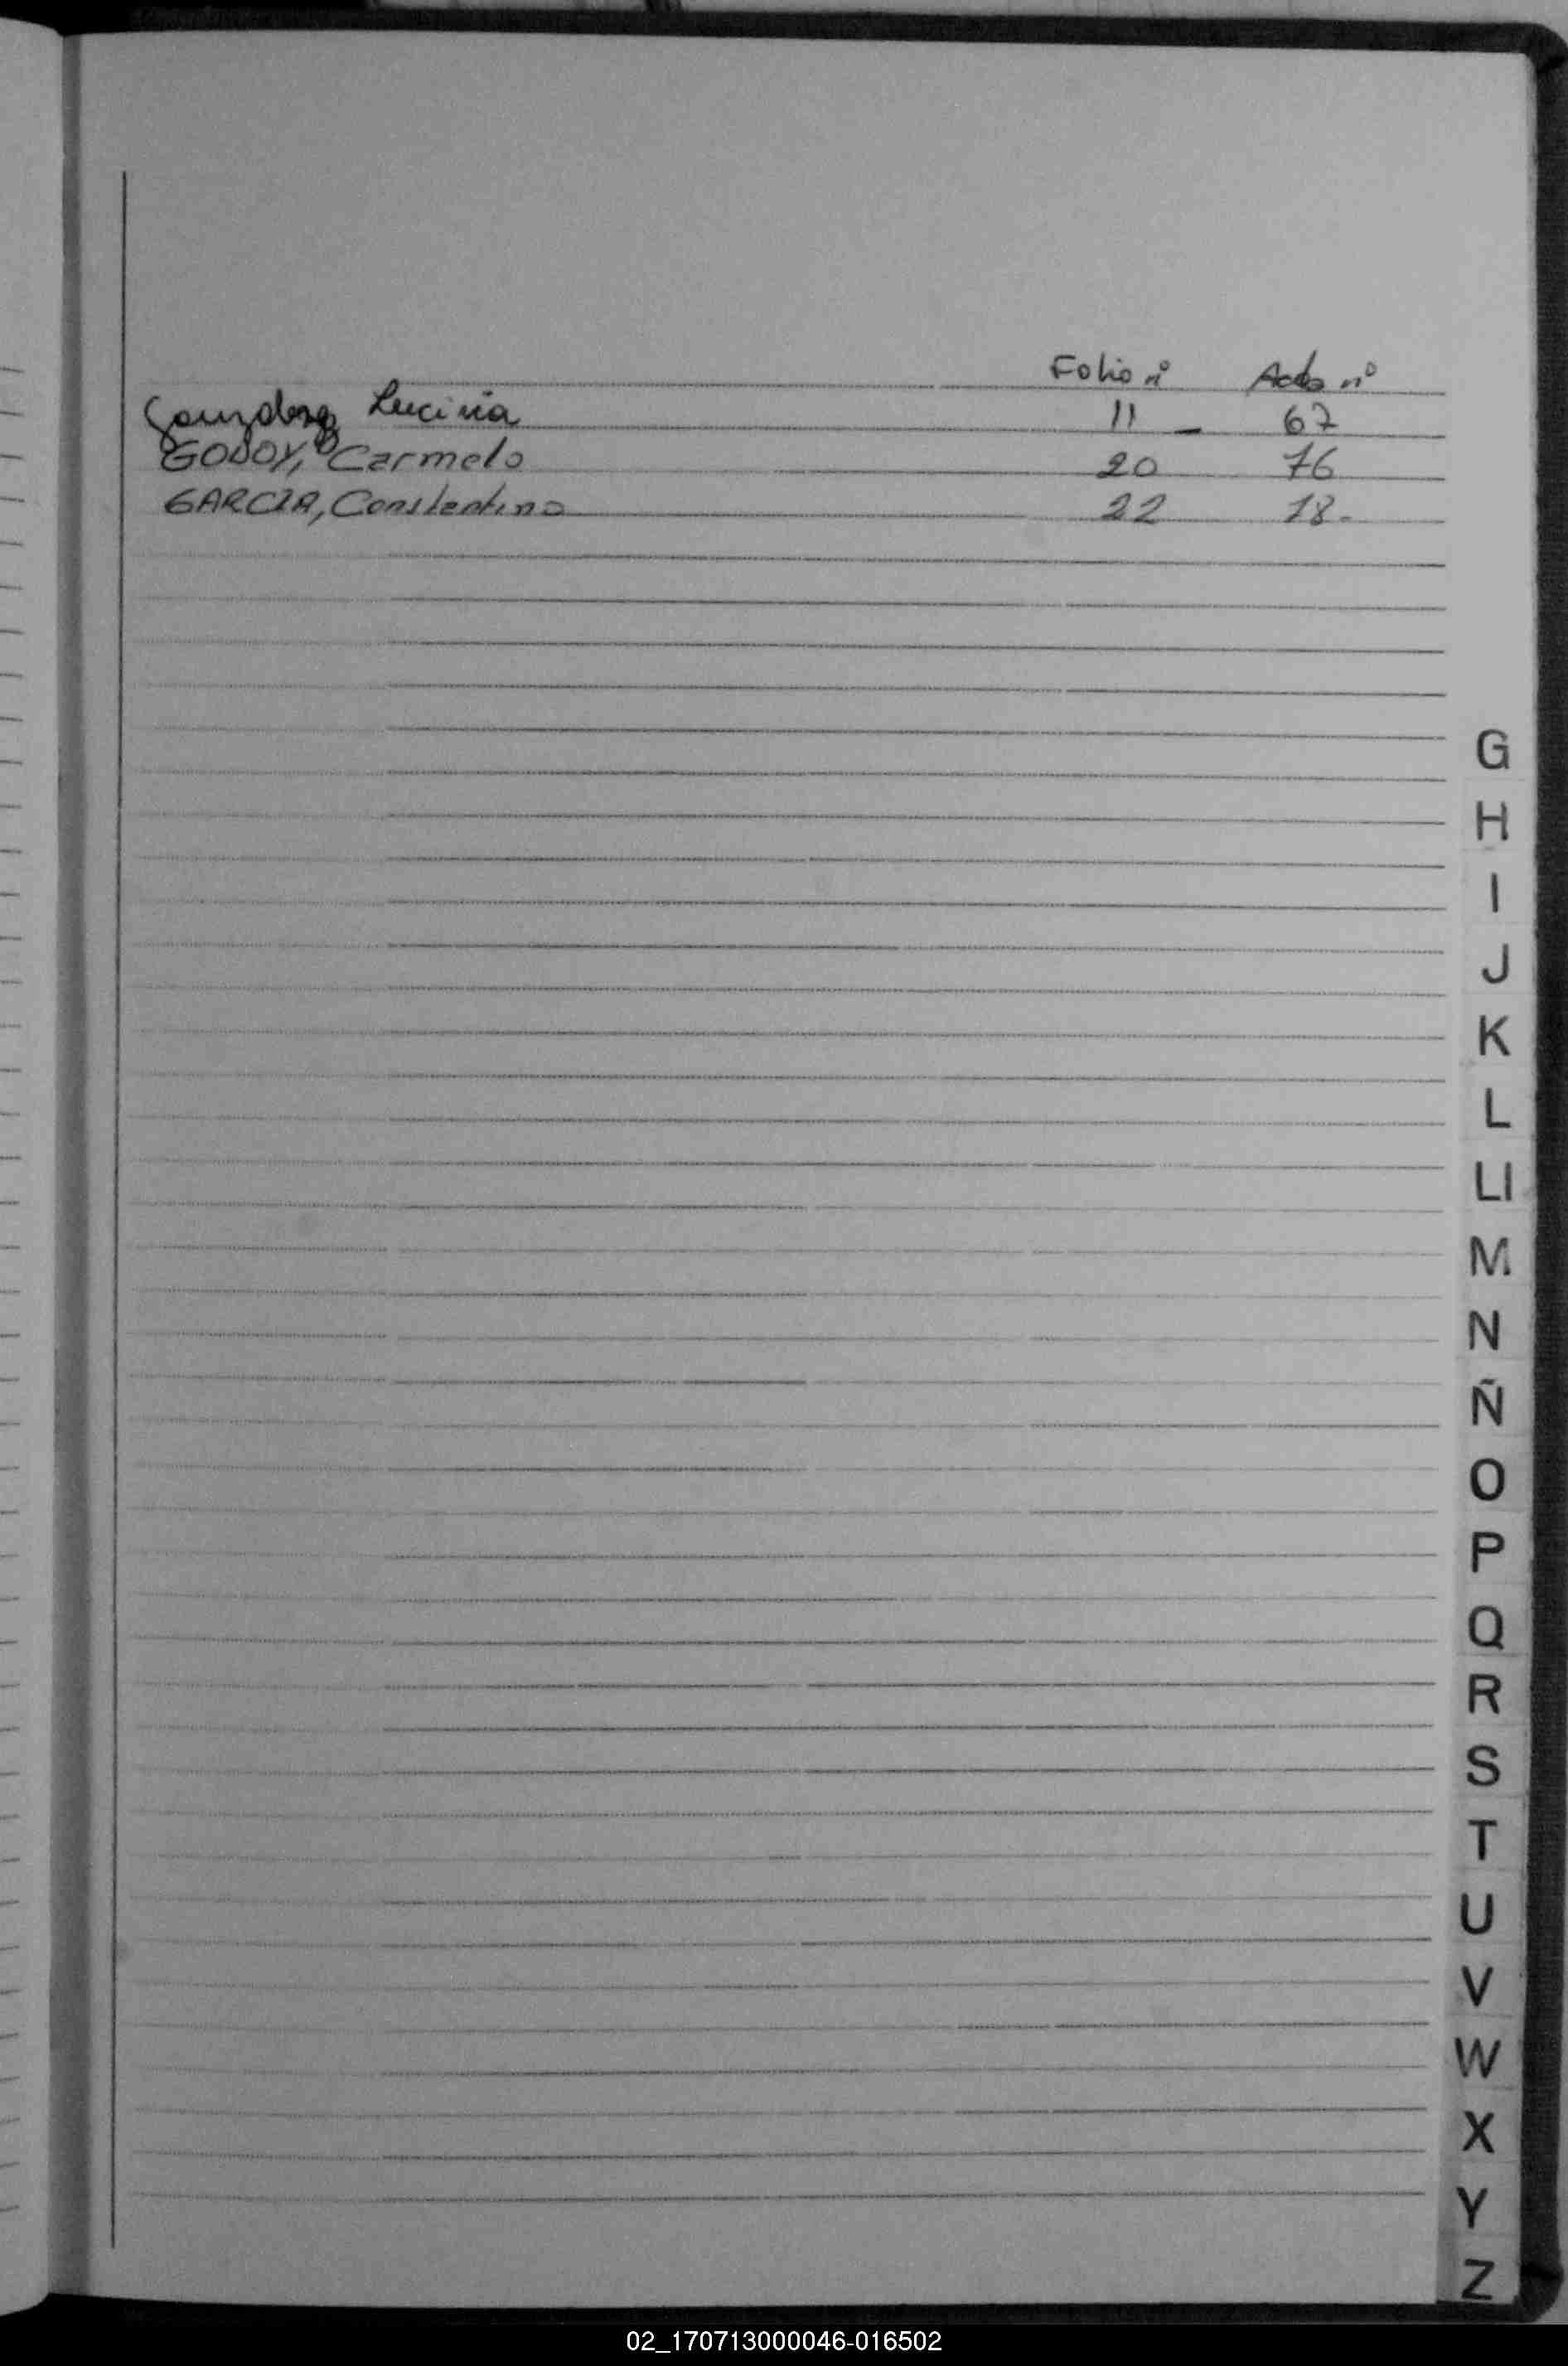 Folio nº Acta nº
Gonzalez Lucina 11 - 67
GODOY, Carmelo 20 76
GARCIA, Constantino 22 18-
G
H
I
J
K
L
Ll
M
N
Ñ
O
P
Q
R
S
T
U
V
W
X
Y
Z
02_170713000046-016502